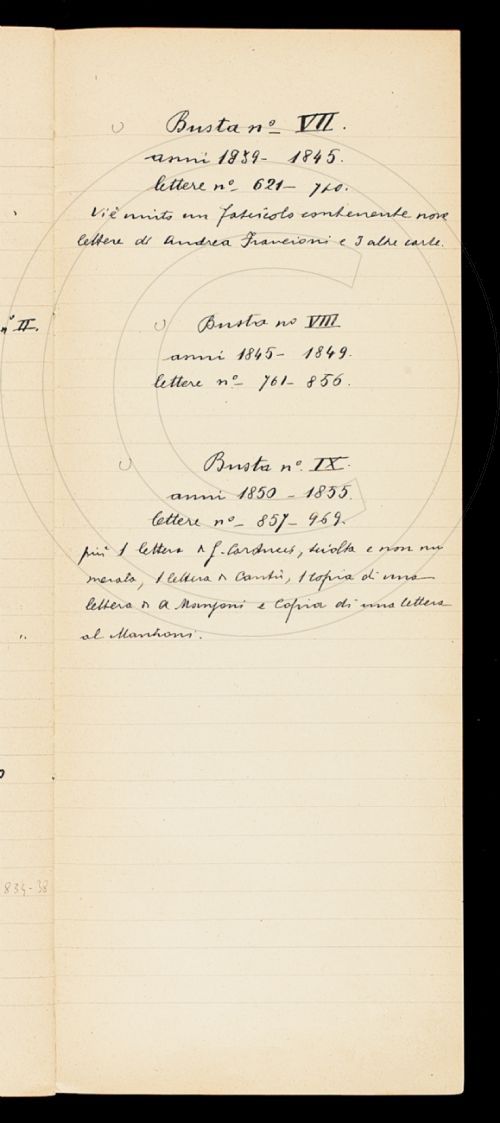 Busta nº VII.
anni 1839 - 1845.
lettere nº 621 - 760.
Vi è unito un fascicolo contenente nove
lettere di Andrea Francioni e 3 altre carte.
nº II.
Busta nº VIII
anni 1845 - 1849.
lettere nº - 761 - 856.
Busta nº IX.
anni 1850 - 1855.
lettere nº - 857 - 969.
più 1 lettera di G. Carducci, sciolta e non nu
merata, 1 lettera di Cantù, 1 copia di una
lettera di A Manzoni e copia di una lettera
al Manzoni.
834-38